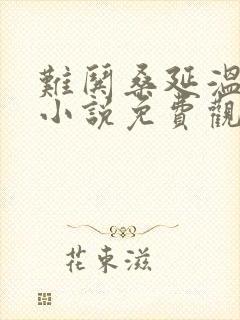 難鬨桑延溫
小說免費觀
花東滋